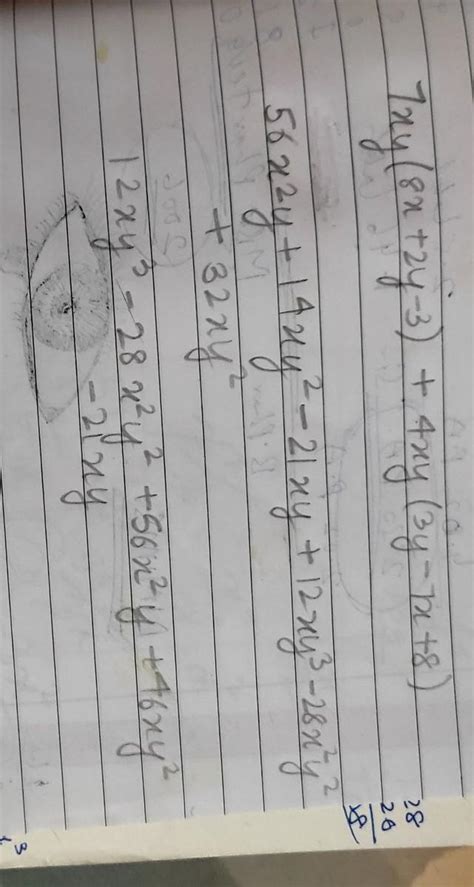 7xy(8x+2y-3) + 4xy(3y-7x+8)
56x²y+14xy²-21xy+12xy³-28x²y²
+32xy²
12xy³-28x²y²+56x²y+46xy²
-21xy
28